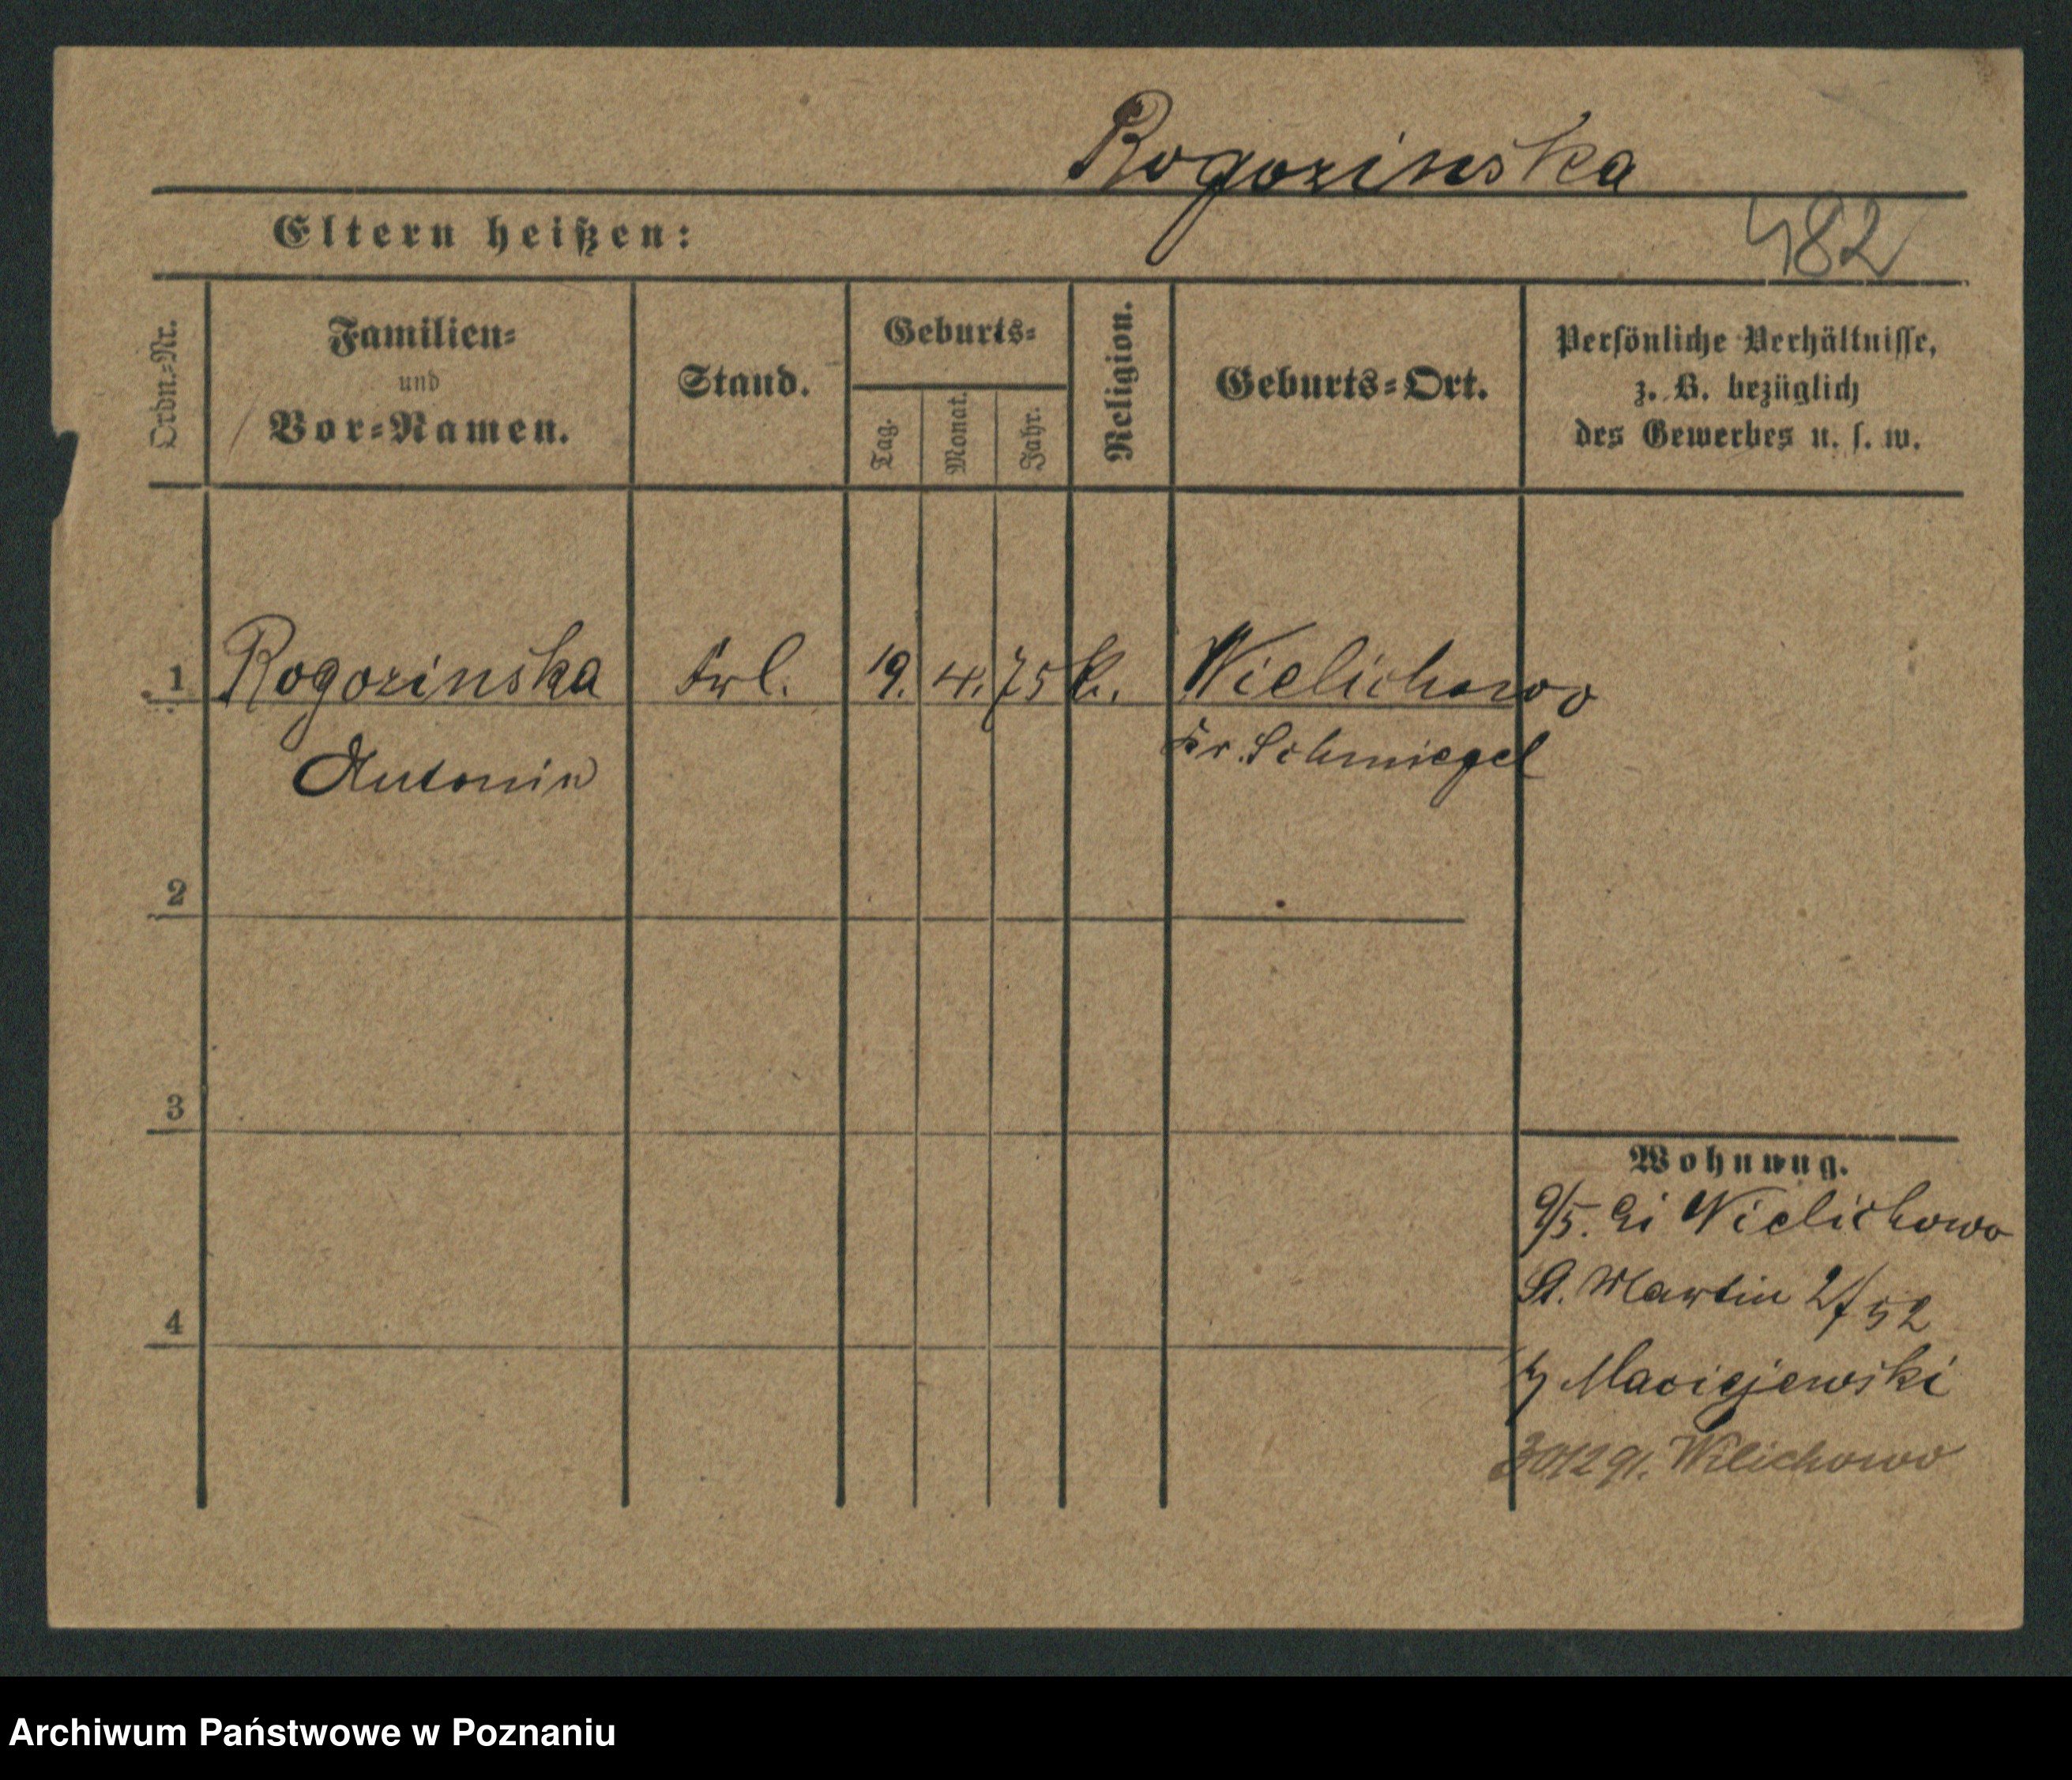 Rogozinska
Eltern heißen:
482
Ordn.-Nr.
Familien-
und
Vor-Namen.
Stand.
Geburts-
Tag.
Monat.
Jahr.
Religion.
Geburts-Ort.
Persönliche Verhältnisse,
z. B. bezüglich
des Gewerbes u. s. w.
1 Rogozinska Frl. 19. 4. 75 k. Wielichowo
Antonin Kr. Schmiegel
2
3
Wohnung.
9/5. 91 Wielichowo
St. Martin 2/52
Maciejewski
4
30/12 91. Wilichowo
Archiwum Państwowe w Poznaniu